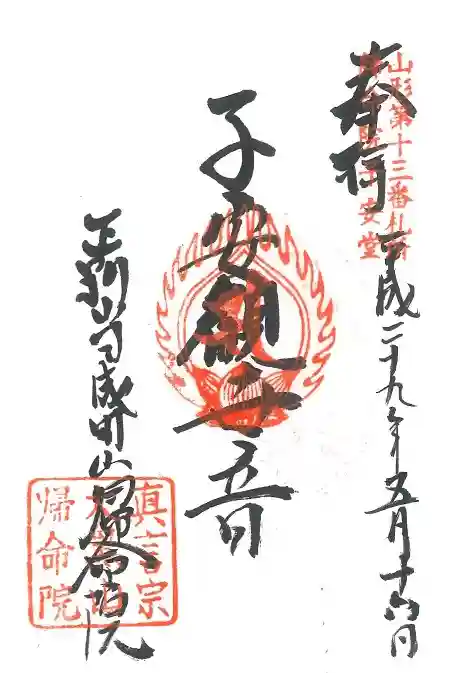 奉拝
平成二十九年五月十六日
山形第十三番札所
子安堂
子安観世音
帰命院
真言宗
帰命院